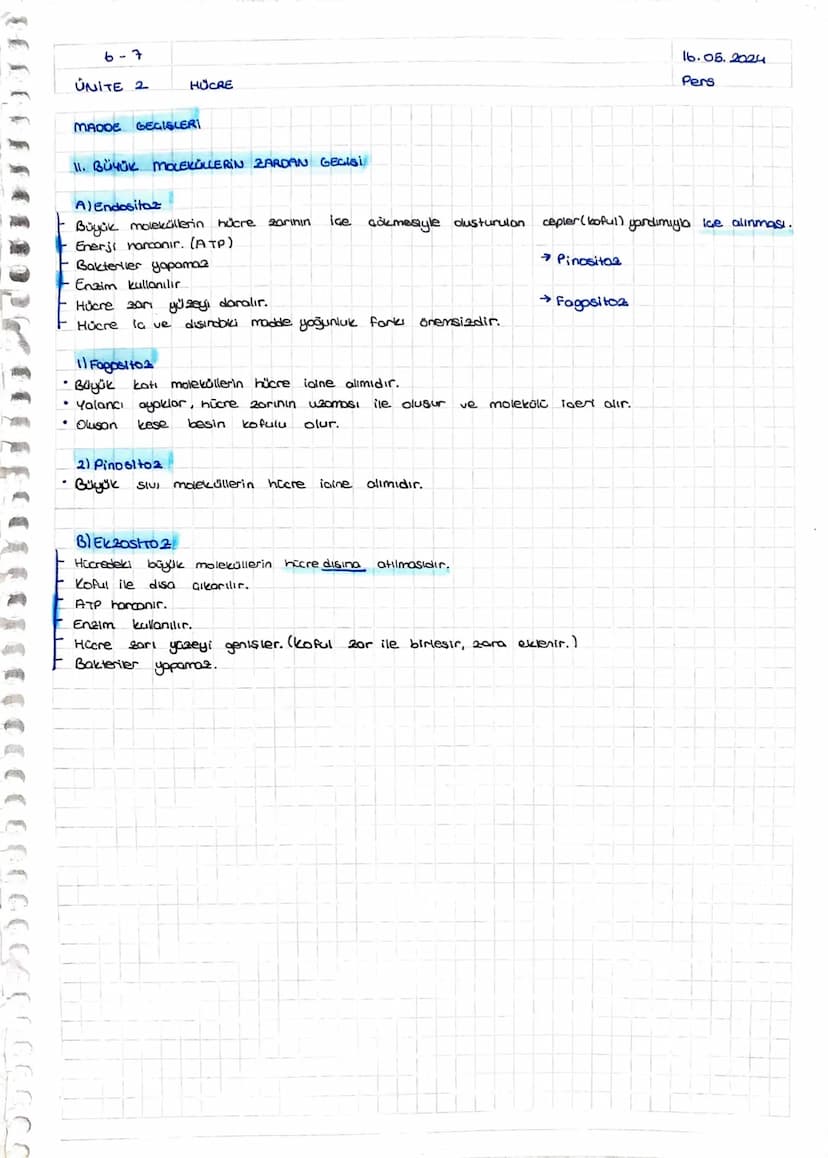 6-7
16.05.2024
ÜNİTE 2 HÜCRE
Pers
MADDE GEÇİŞLERİ
II. BÜYÜK MOLEKÜLLERİN ZARDAN GEÇİŞİ
A) Endositoz
Büyük moleküllerin hücre zarının içe çökmesiyle oluşturulan cepler (koful) yardımıyla içe alınması.
Enerji harcanır. (ATP)
Bakteriler yapamaz
→ Pinositoz
Enzim kullanılır
Hücre zarı yüzeyi daralır.
→ Fagositoz
Hücre içi ve dışındaki madde yoğunluk farkı önemsizdir.
1) Fagositoz
• Büyük katı moleküllerin hücre içine alımıdır.
• Yalancı ayaklar, hücre zarının uzaması ile oluşur ve molekülü içeri alır.
• Oluşan kese besin kofulu olur.
2) Pinositoz
• Büyük sıvı moleküllerin hücre içine alımıdır.
B) Ekzositoz
Hücredeki büyük moleküllerin hücre dışına atılmasıdır.
Koful ile dışa çıkarılır.
ATP harcanır.
Enzim kullanılır.
Hücre zarı yüzeyi genişler. (Koful zar ile birleşir, zara eklenir.)
Bakteriler yapamaz.